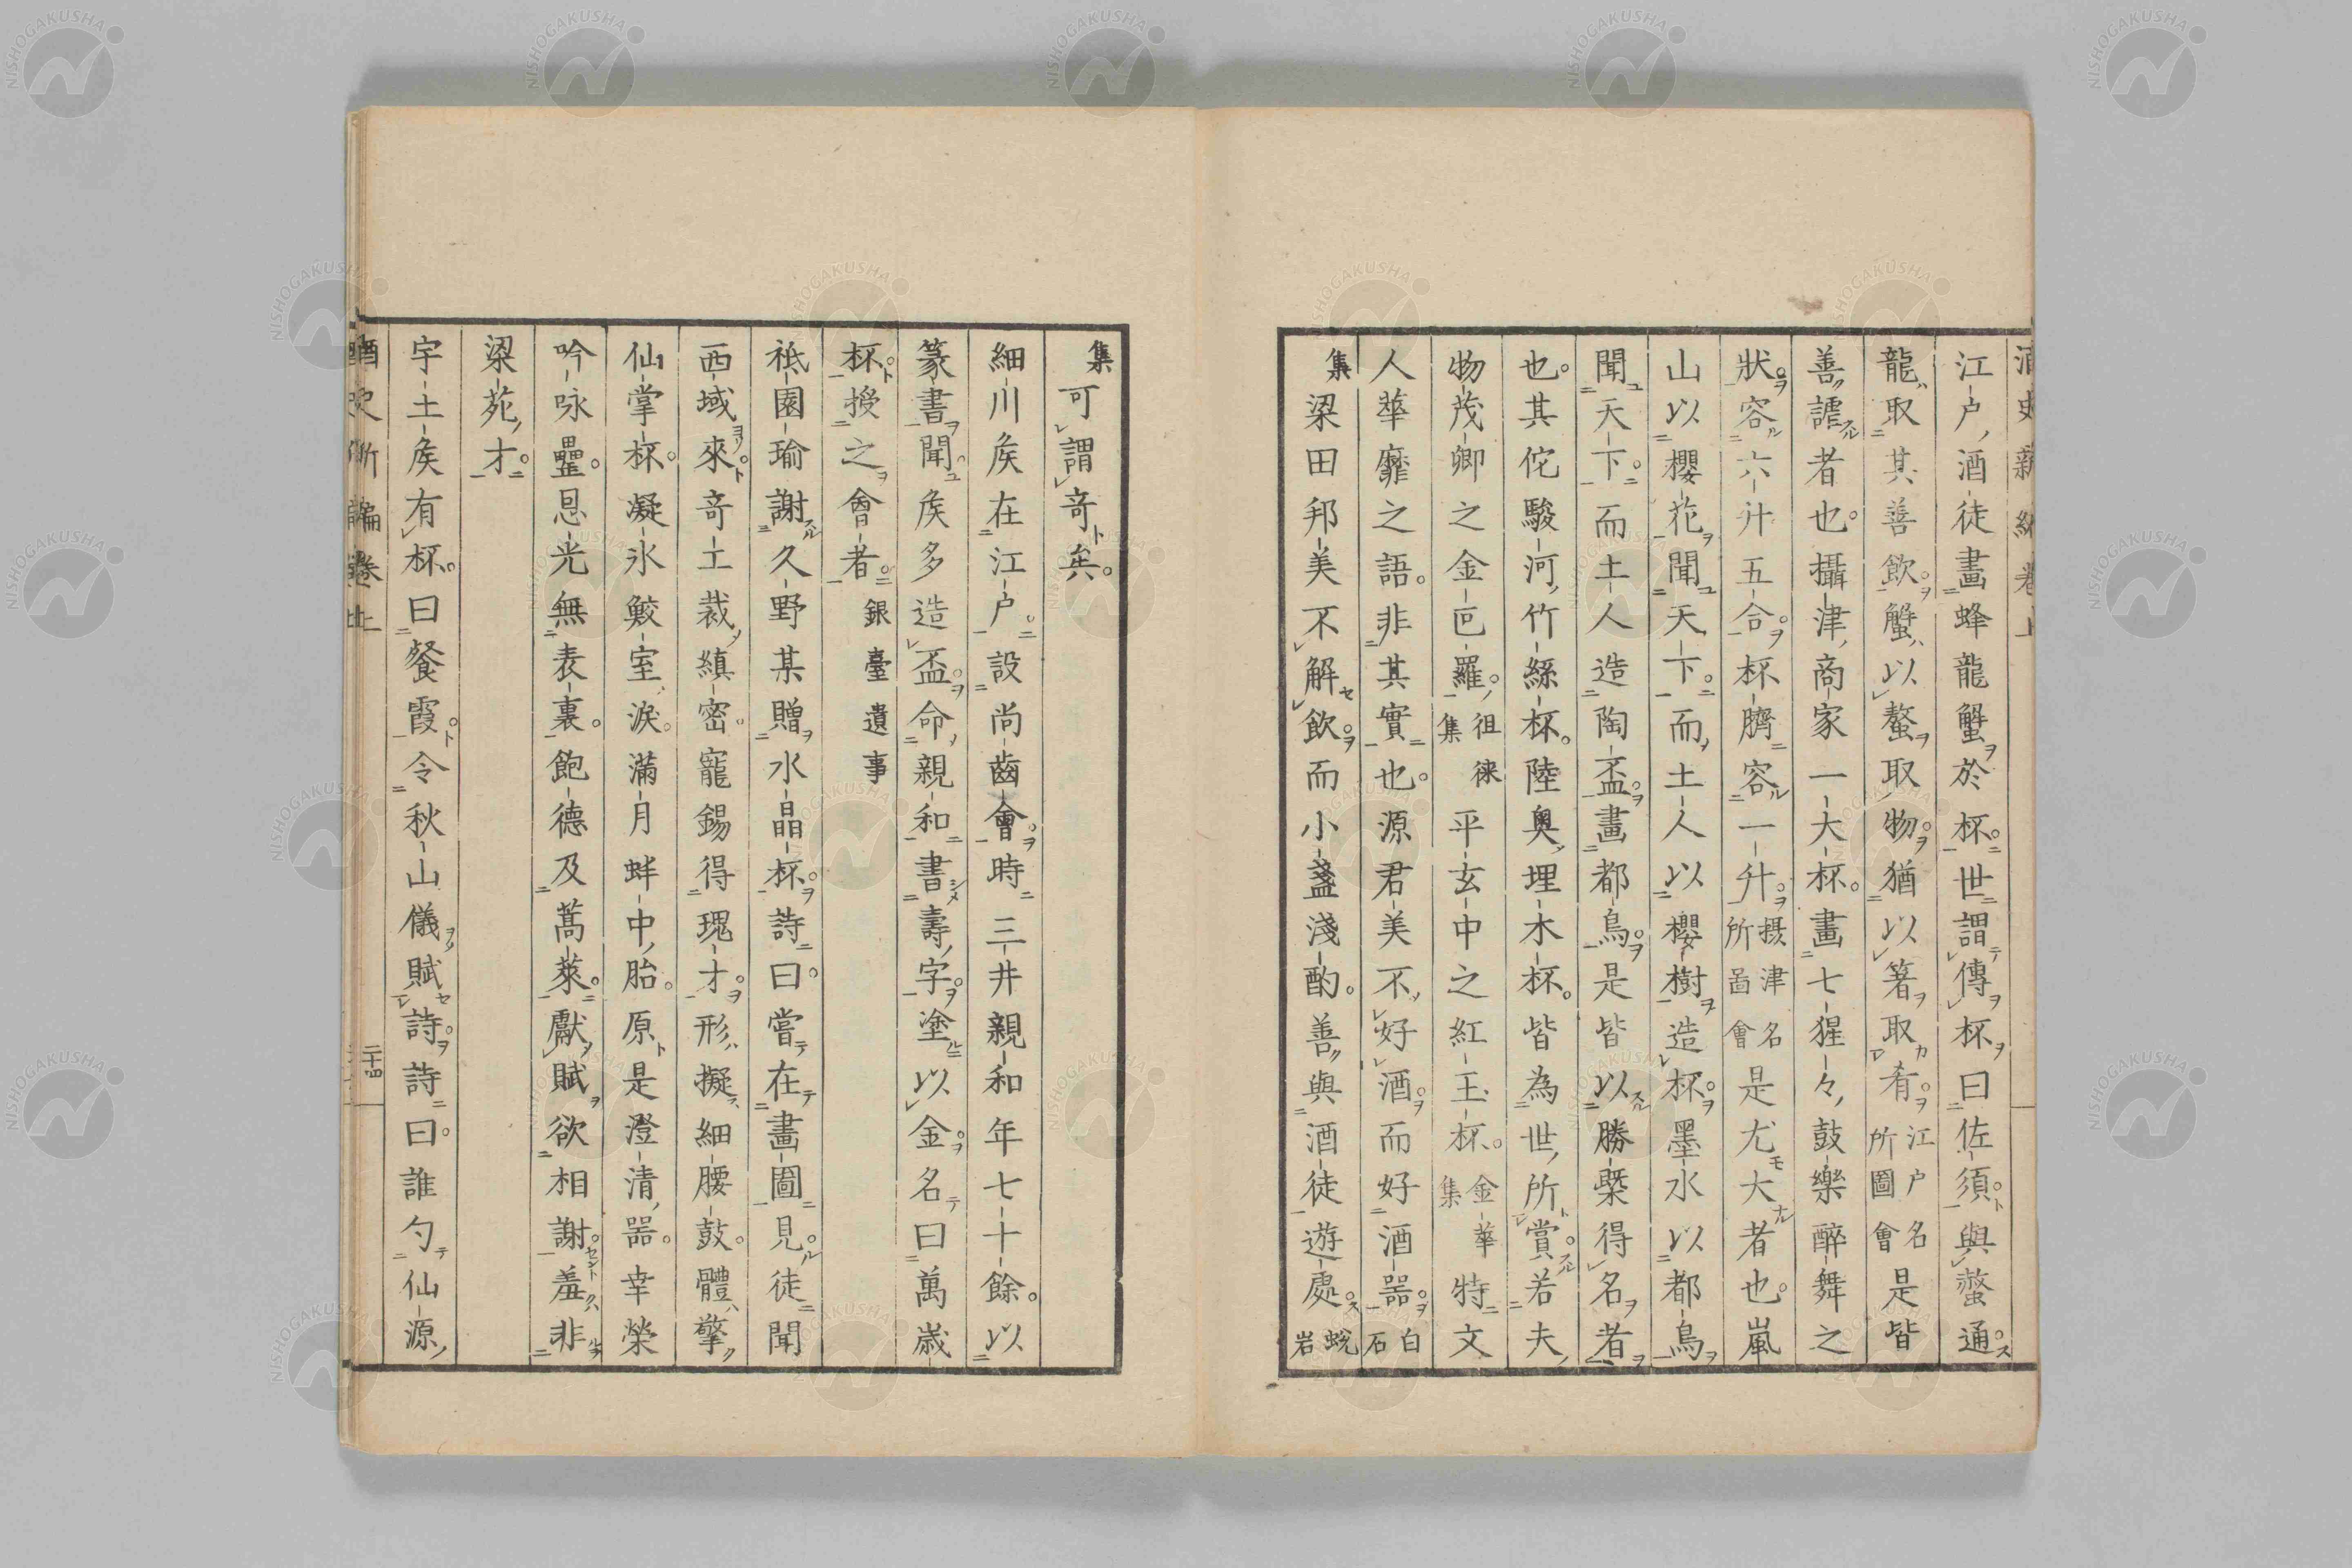 江戸酒徒畫蜂龍蟹於杯世謂傳杯曰佐須與螫通
龍取其善飲蟹以螯取物猶以箸取肴江戸名所圖會是皆
善謔者也攝津商家一大杯畫七猩々鼓樂醉舞之
狀容六升五合杯臍容一升摂津名所啚會是尤大者也嵐
山以櫻花聞天下而土人以櫻樹造杯墨水以都鳥
聞天下而土人造陶盃畫都鳥是皆以勝槩得名者
也其佗駿河竹絲杯陸奧埋木杯皆為世所賞若夫
物茂卿之金叵羅徂徠集平玄中之紅玉杯金華集特文
人華靡之語非其實也源君美不好酒而好酒噐白石
集梁田邦美不解飲而小盞淺酌善與酒徒遊處蛻岩
集可謂竒矣
細川矦在江戸設尚齒會時三井親和年七十餘以
篆書聞矦多造盃命親和書壽字塗以金名曰萬歲
杯授之會者銀臺遺事
祗園瑜謝久野某贈水晶杯詩曰嘗在畫圖見徒聞
西域來竒工裁縝密寵錫得瑰才形擬細腰鼓體擎
仙掌杯凝氷鮫室淚滿月蚌中胎原是澄清噐幸榮
吟咏罍恩光無表裏飽德及蒿萊獻賦欲相謝羞非
梁苑才
宇土矦有杯曰餐霞令秋山儀賦詩詩曰誰勺仙源